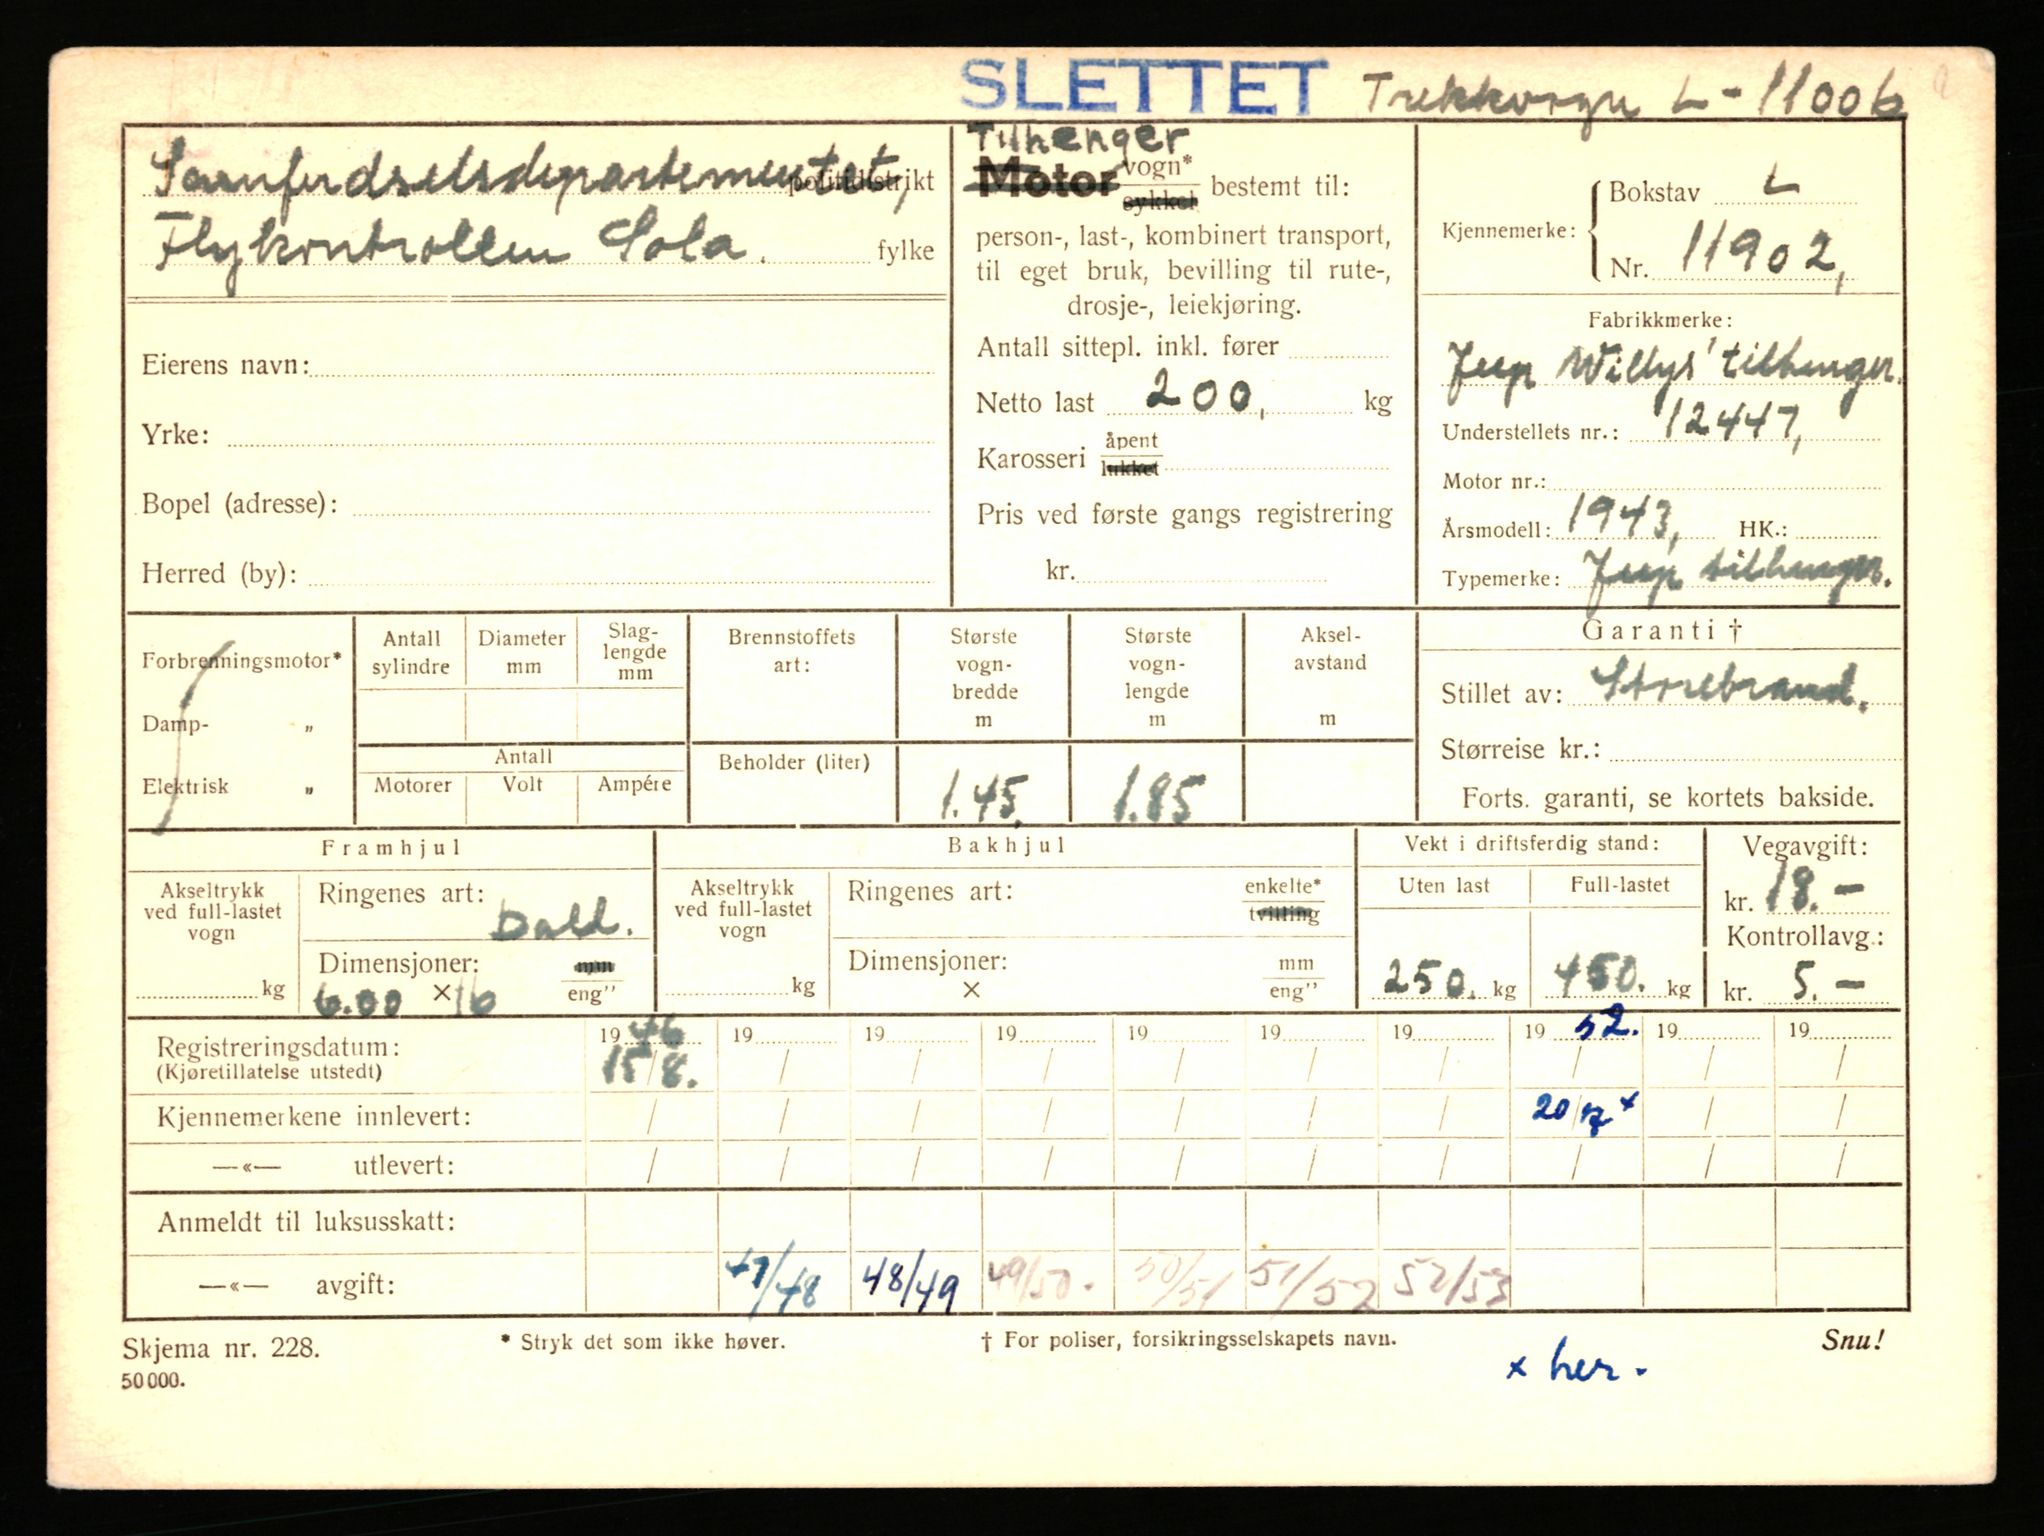 SLETTET Trekkvogn L-11006
Samferdselsdepartementet, politidistrikt
Flykontrollen Sola. fylke
Eierens navn:
Yrke:
Bopel (adresse):
Herred (by):
Tilhenger
Motor vogn*
sykkel bestemt til:
person-, last-, kombinert transport,
til eget bruk, bevilling til rute-,
drosje-, leiekjøring.
Antall sittepl. inkl. fører
Netto last 200, kg
Karosseri åpent
lukket
Pris ved første gangs registrering
kr.
Kjennemerke: Bokstav L
Nr. 11902,
Fabrikkmerke:
Jeep Willys' tilhenger.
Understellets nr.: 12447,
Motor nr.:
Årsmodell: 1943, HK.:
Typemerke: Jeep tilhenger.
Forbrenningsmotor*
Damp- „
Elektrisk „
Antall sylindre
Diameter mm
Slag-
lengde
mm
Antall
Motorer Volt Ampére
Brennstoffets
art:
Beholder (liter)
Største
vogn-
bredde
m
1.45.
Største
vogn-
lengde
m
1.85
Aksel-
avstand
m
Garanti †
Stillet av: Storebrand.
Størreise kr.:
Forts. garanti, se kortets bakside.
Framhjul
Akseltrykk
ved full-lastet
vogn
kg
Ringenes art:
Dald.
Dimensjoner: mm
6.00 × 16 eng”
Bakhjul
Akseltrykk
ved full-lastet
vogn
kg
Ringenes art: enkelte*
tvilling
Dimensjoner: mm
× eng”
Vekt i driftsferdig stand:
Uten last Full-lastet
250. kg 450. kg
Vegavgift:
kr. 18.-
Kontrollavg.:
kr. 5.-
19 46 19 19 19 19 19 19 19 52. 19 19
Registreringsdatum: 15/8. / / / / / / / / /
(Kjøretillatelse utstedt)
Kjennemerkene innlevert: / / / / / / / 20/12 x / /
—«— utlevert: / / / / / / / / / /
Anmeldt til luksusskatt:
—«— avgift: 47/48 48/49 49/50. 50/51 51/52 52/53
Skjema nr. 228. * Stryk det som ikke høver. † For poliser, forsikringsselskapets navn. Snu!
50000.
x her.